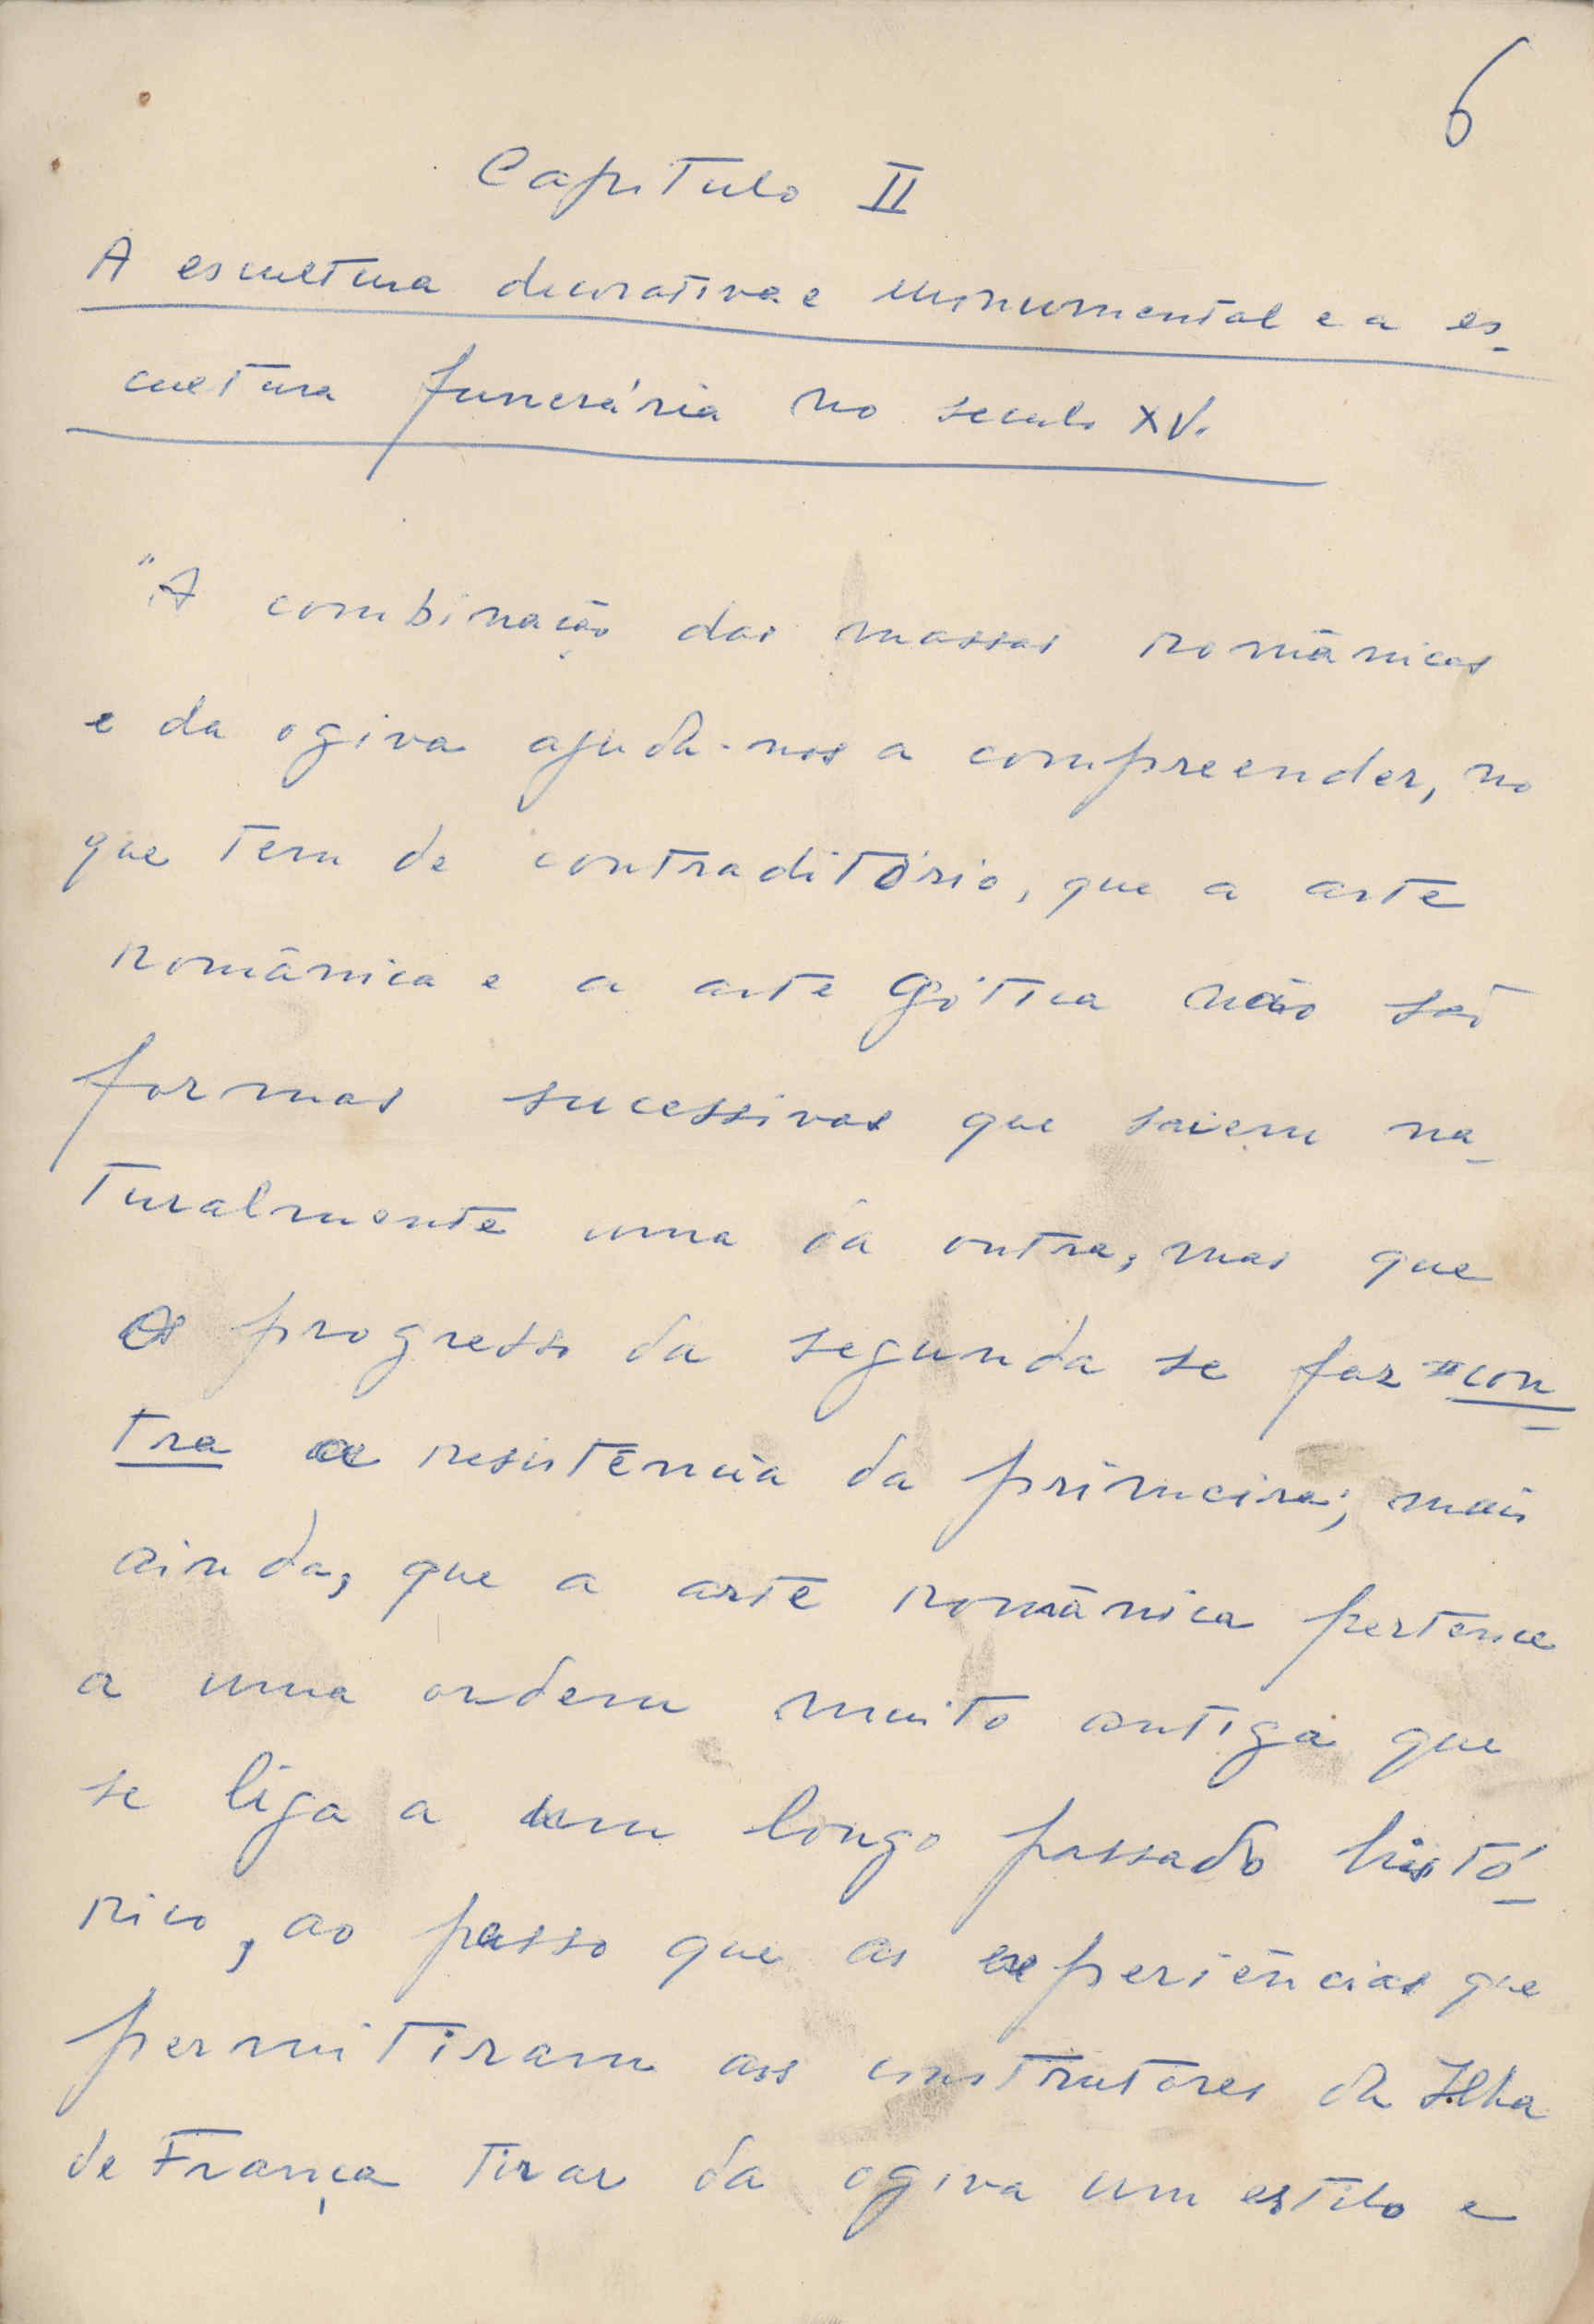 6
Capitulo II
A escultura decorativa e monumental e a es-
cultura funerária no seculo XV.
"A combinação das massas românicas
e da ogiva ajuda-nos a compreender, no
que tem de contraditório, que a arte
românica e a arte gótica não são
formas sucessivas que saiem na-
turalmente uma da outra, mas que
os progresso da segunda se faz "con-
tra a resistência da primeira; mais
ainda, que a arte românica pertence
a uma ordem muito antiga que
se liga a um longo passado histó-
rico, ao passo que as experiências que
permitiram aos construtores da Ilha
de França tirar da ogiva um estilo e